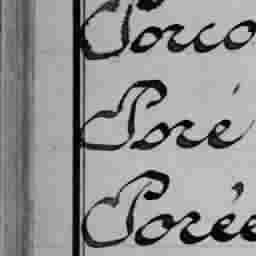 Porco
Poré
Porée